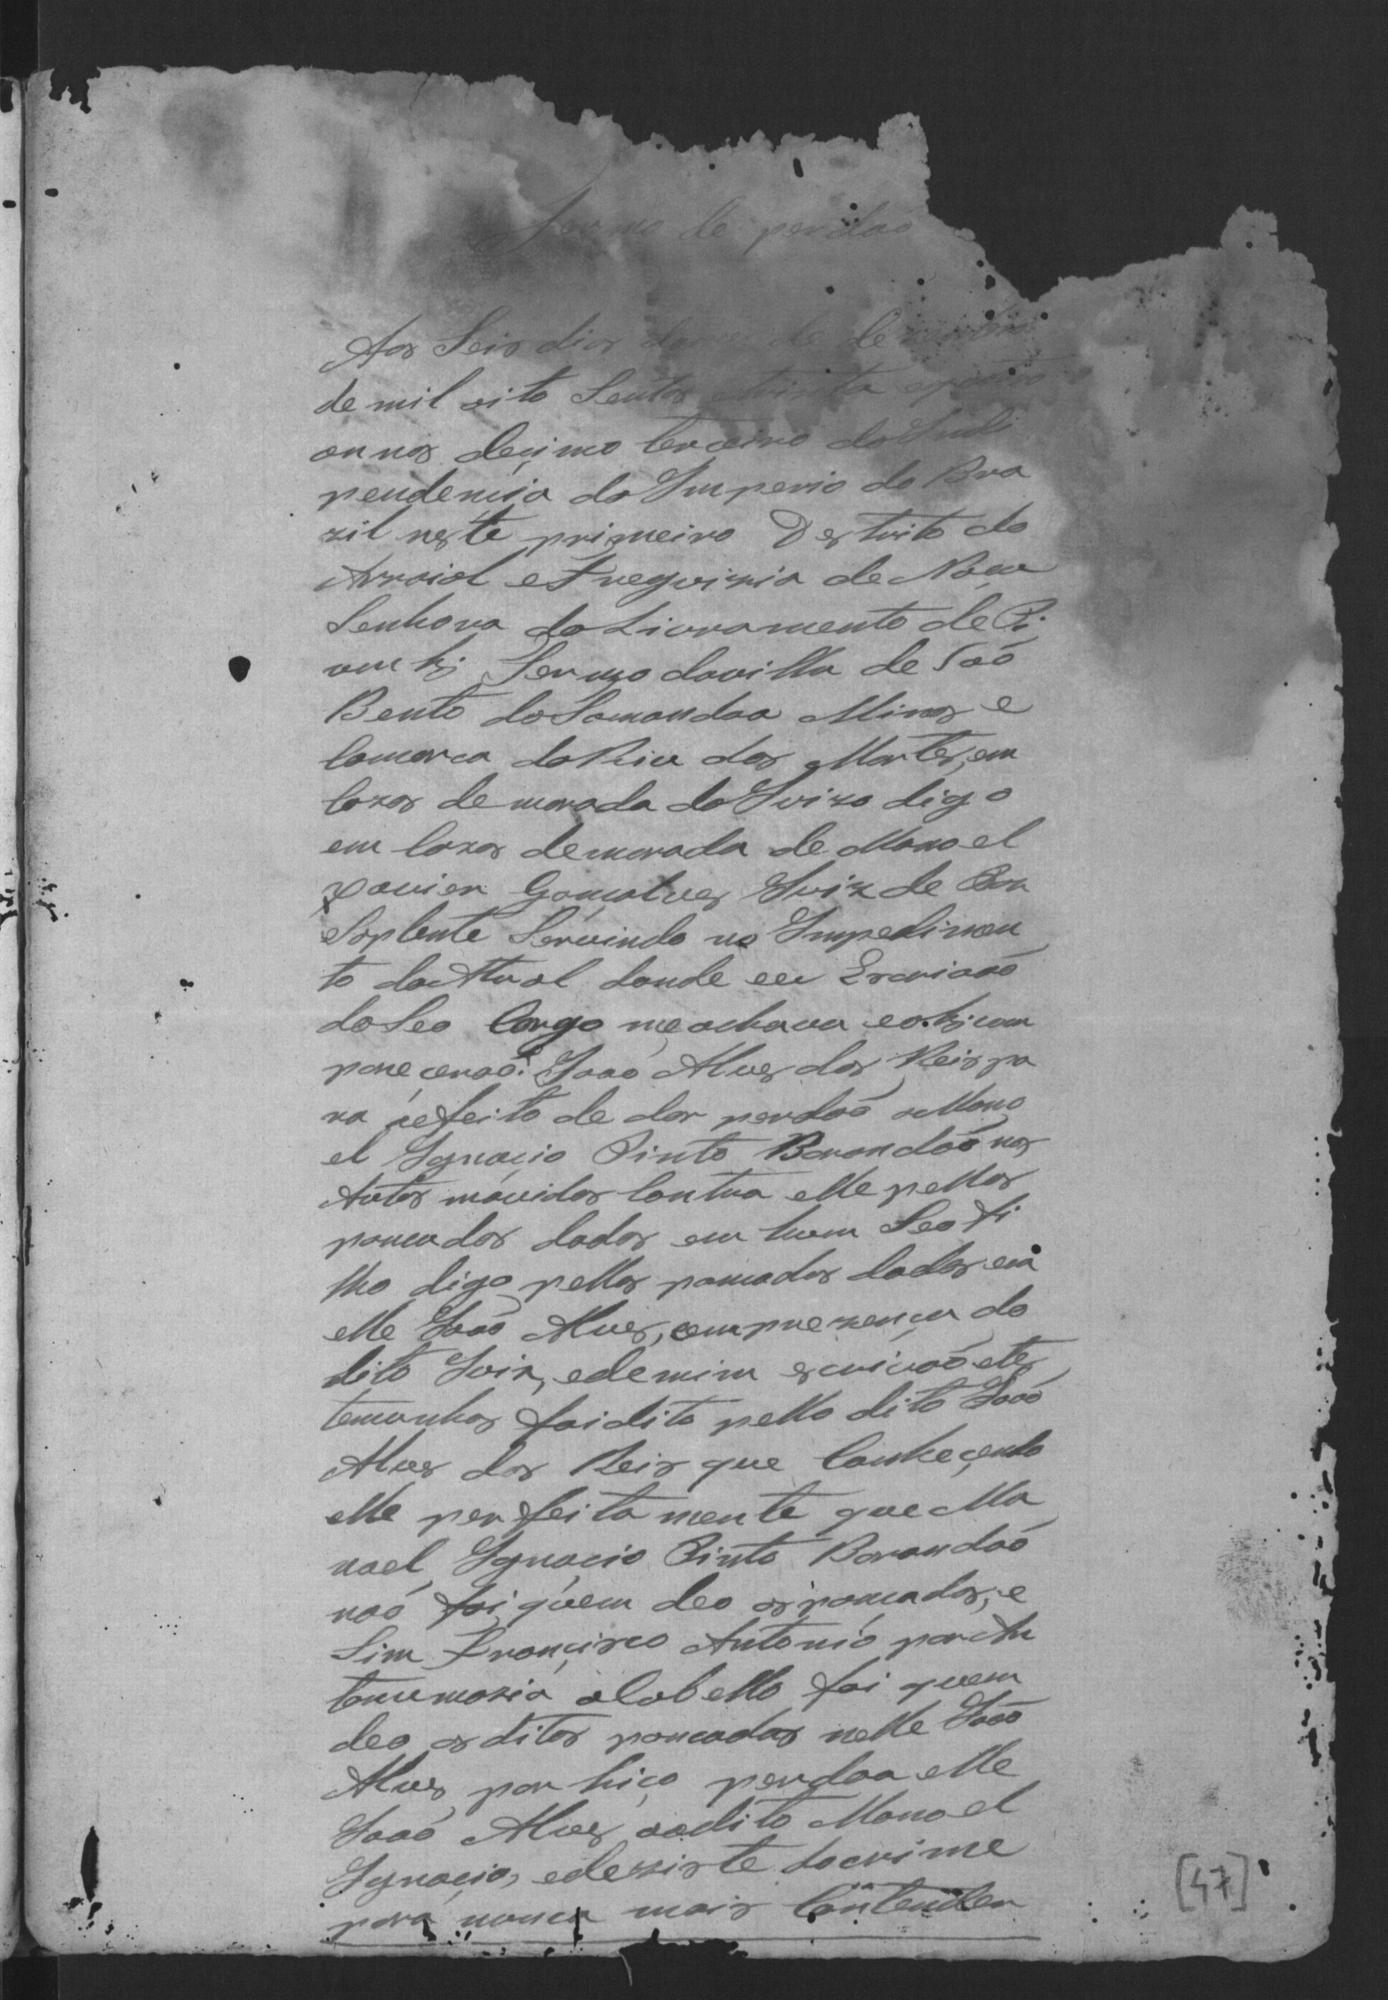 Termo de perdaõ
Aos Seis dias do mes de Dezembro
de mil oito Sentos etrinta equatro
annos deçimo terceiro da Indi
pendençia do Imperio do Bra
zil neste primeiro Destrito do
Arraial eFreguizia de Noça
Senhora do Livramento de Pi
umhi Termo davilla de Saõ
Bento do Tamandua Minas e
Comarca do Rio das Mortes, em
Cazas de morada do Juizo digo
em Cazas demorada de Manoel
Xavier Gonçalves Juiz de Paz
Soplente Servindo no Impedimen
to do Atual donde eu Escrivaõ
do Seo Cargo meachava eohi com
pareceraõ Joaõ Alves dos Reis pa
ra oefeito de dar perdaõ aMano
el Ignaçio Pinto Barandaõ nos
Autos móvidos Contra elle pellas
pancadas dadas em hum Seo fi
lho digo pellas pancadas dadas em
elle Joaõ Alves, eemprezença do
dito Juiz, edemim escrivaõ etes
temunhas foidito pello dito Joaõ
Alves dos Reis que Conheçendo
elle perfeitamente que Ma
noel Ignacio Pinto Barandaõ
naõ foi quem deo aspancadas, e
Sim Françisco Antonio por An
tonomazia oCabello foi quem
deo as ditas pancadas nelle Joaõ
Alves por hiço perdoa elle
Joaõ Alves aodito Manoel
Ignacio, edezziste docrime
para nunca mais Contender
[47]